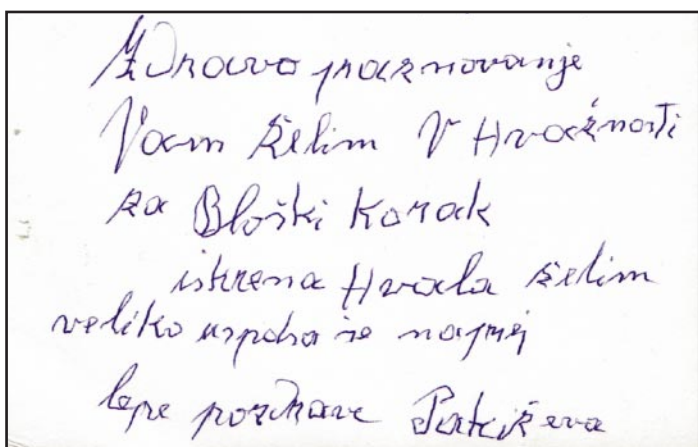 Zdravo praznovanje
Vam želim V Hvažnosti
za Bloški Korak
iskrena Hvala želim
veliko uspeha še naprej
lepe pozdrave